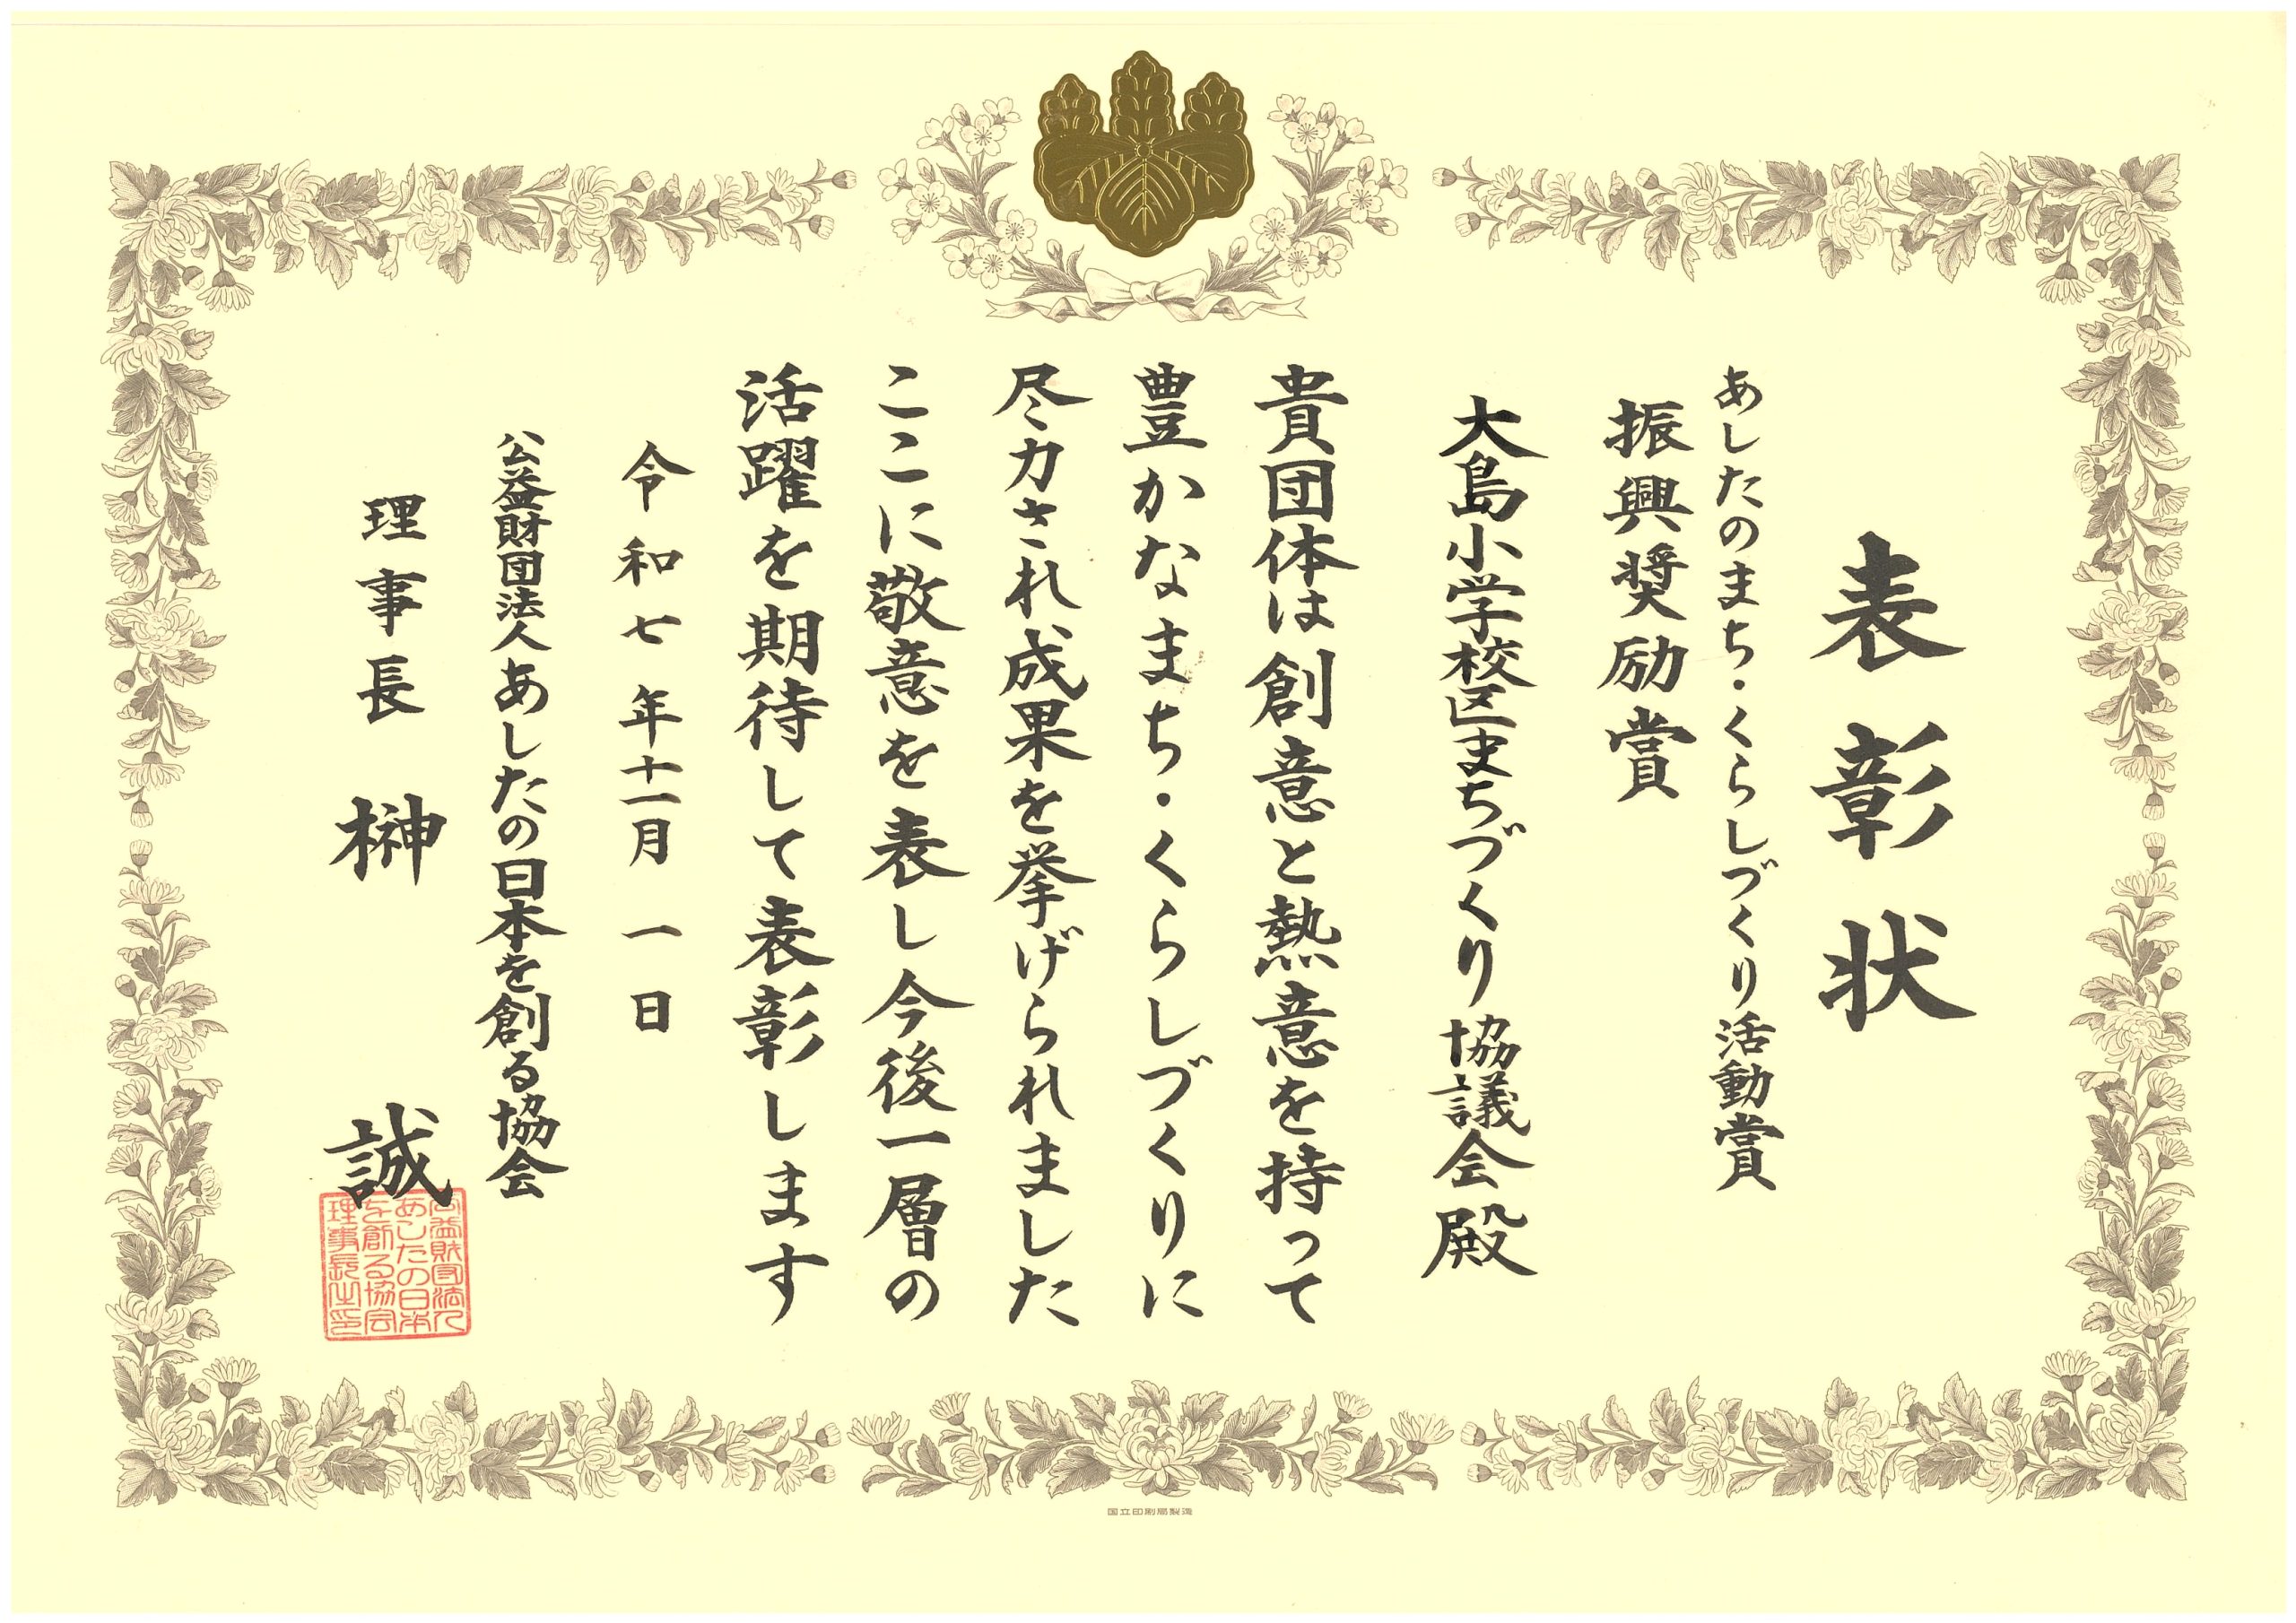 表彰状
あしたのまち・くらしづくり活動賞
振興奨励賞
大島小学校区まちづくり協議会殿
貴団体は創意と熱意を持って
豊かなまち・くらしづくりに
尽力され成果を挙げられました
ここに敬意を表し今後一層の
活躍を期待して表彰します
令和七年十一月一日
公益財団法人あしたの日本を創る協会
理事長 榊 誠
公益財団法人
あしたの日本
を創る協会
理事長之印
国立印刷局製造